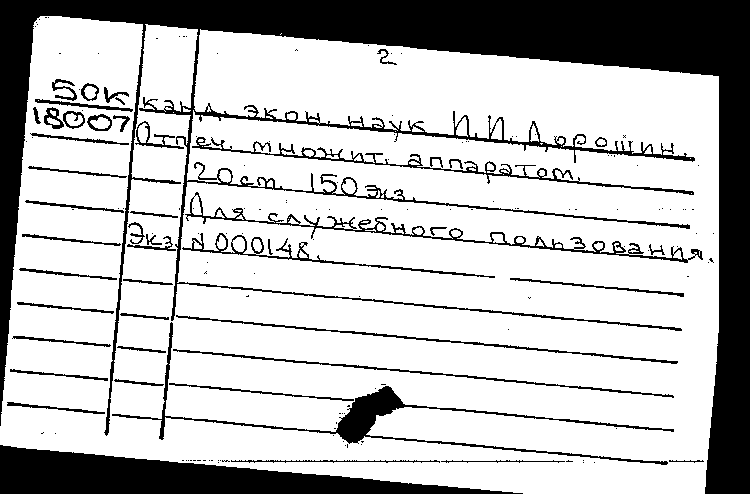 2
50К
18007
канд. экон. наук И.И. Дорошин.
Отпеч. множит. аппаратом.
20 ст. 150 экз.
Для служебного пользования.
Экз. N 000148.